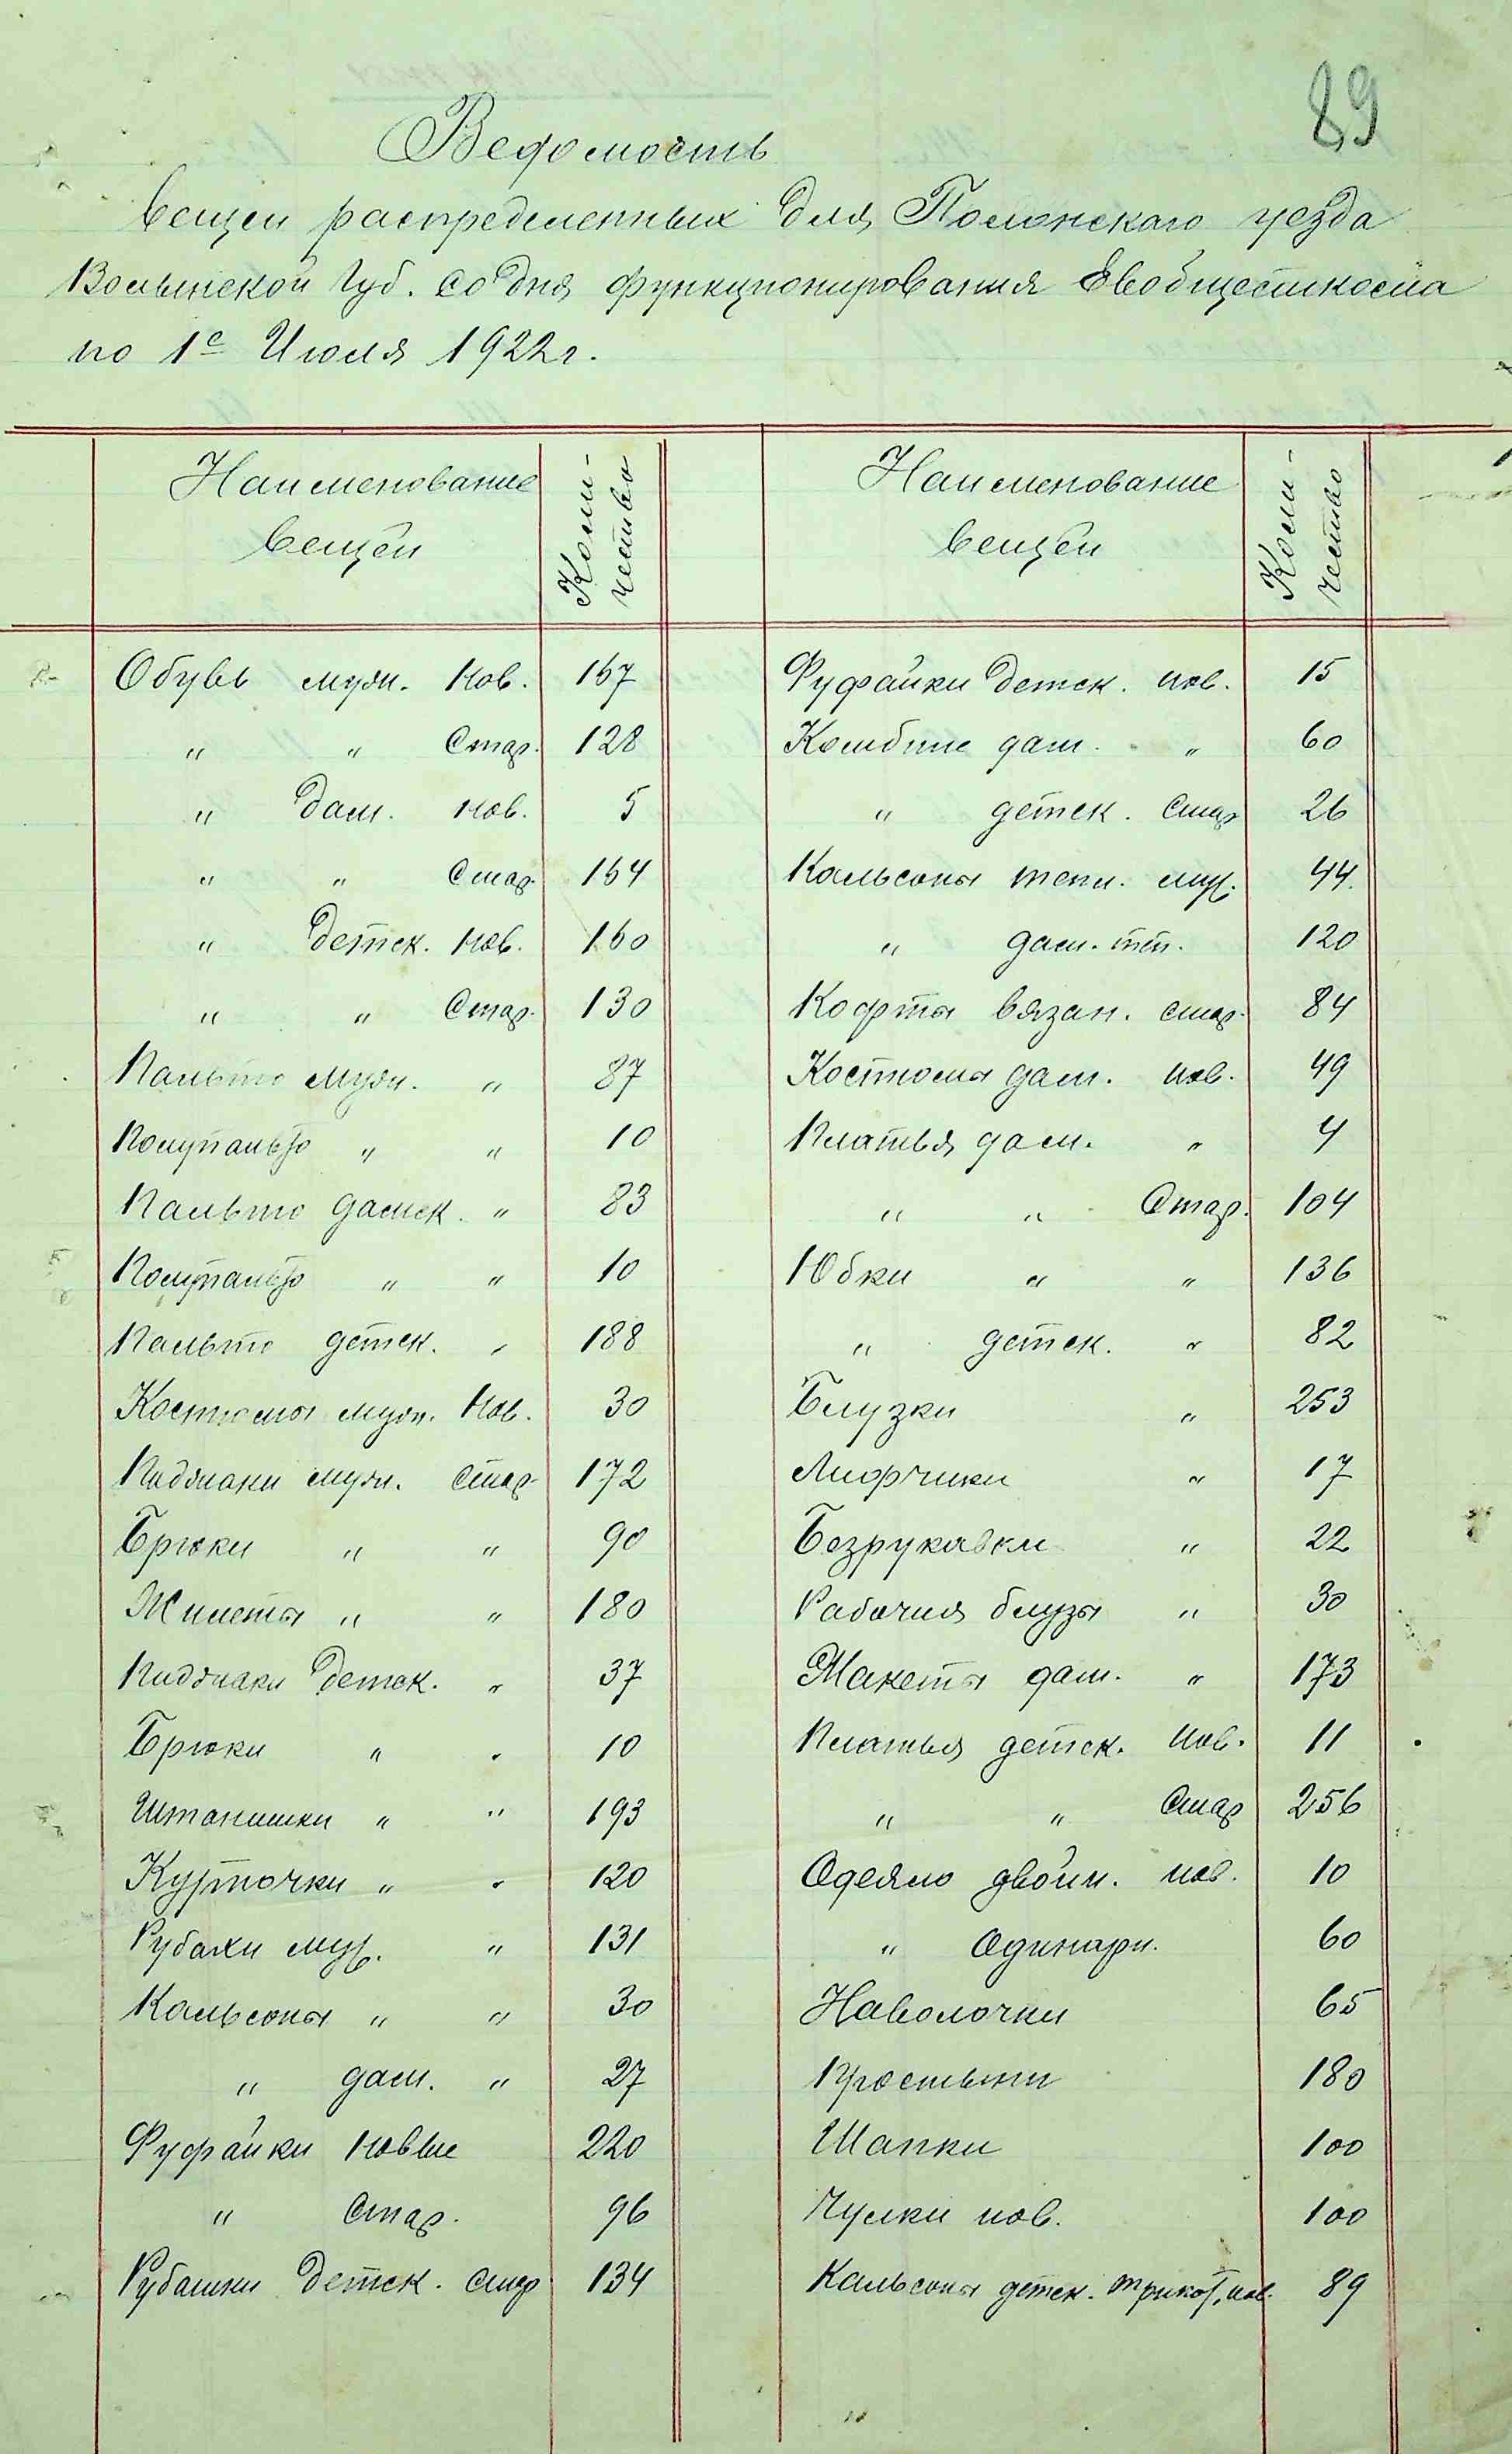 89
Ведомость
вещей распределенных для Полонского уезда
Волынской Губ. со дня функционирования Евобщесткома
по 1е Июля 1922 г.
Наименование вещей Коли-чество Наименование вещей Коли-чество
Обувь мужс. Нов. 167 Фуфайки детск. нов. 15
" " Стар. 128 Комбине дам. " 60
" дам. нов. 5 " детск. Стар 26
" " Стар. 164 Кальсоны тепл. муж. 44.
" детск. нов. 160 " дам. теп. 120
" " Стар. 130 Кофты вязан. стар. 84
Пальто мужс. " 87 Костюмы дам. нов. 49
Полупальто " " 10 Платья дам. " 4
Пальто дамск. " 83 " " Стар. 104
Полупальто " " 10 Юбки " " 136
Пальто детск. " 188 " детск. " 82
Костюмы мужс. Нов. 30 Блузки " 253
Пиджаки мужс. Стар. 172 Лифчики " 17
Брюки " " 90 Безрукавки " 22
Жилеты " " 180 Рабочия блузы " 30
Пиджаки детск. " 37 Жакеты дам. " 173
Брюки " " 10 Платья детск. нов. 11
Штанишки " " 193 " " Стар 256
Курточки " " 120 Одеяло двойн. нов. 10
Рубахи муж. " 131 " Одинарн. 60
Кальсоны " " 30 Наволочки 65
" дам. " 27 Простыни 180
Фуфайки Новые 220 Шапки 100
" Стар. 96 Чулки нов. 100
Рубашки детск. стар 134 Кальсоны детск. трикот. нов. 89